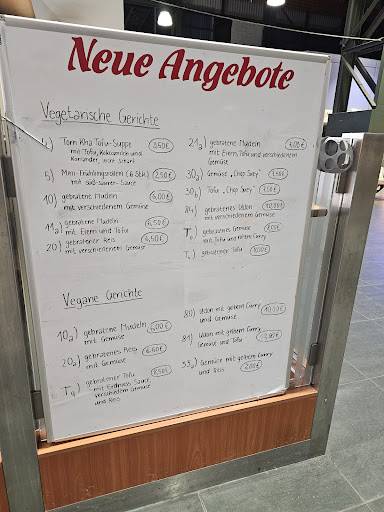 Neue Angebote
Vegetarische Gerichte
Tom Kha Tofu-Suppe 3,50€
mit Tofu, Kokosmilch und
Koriander, leicht scharf
5) Mini-Frühlingsrollen (6 Stk.) 2,50€
mit süß-sauer-Sauce
10) gebratene Nudeln 6,00€
mit verschiedenem Gemüse
11a) gebratene Nudeln 6,50€
mit Eiern und Tofu
20) gebratener Reis 6,50€
mit verschiedenem Gemüse
21a) gebratene Nudeln
mit Eiern, Tofu und verschiedenem
Gemüse
30a) Gemüse „Chop Suey"
30b) Tofu „Chop Suey"
84) gebratenes Udon 10,00€
mit verschiedenem Gemüse
gebratenes Gemüse
mit Tofu und rotem Curry
gebratener Tofu
Vegane Gerichte
10a) gebratene Nudeln 6,00€
mit Gemüse
20a) gebratener Reis 6,60€
mit Gemüse
T4) gebratener Tofu 8,50€
mit Erdnuss Sauce,
verschiedenem Gemüse
und Reis
80) Udon mit gelbem Curry 10,00€
und Gemüse
81) Udon mit gelbem Curry
Gemüse und Tofu
33a) Gemüse mit gelbem Curry
und Reis 7,00€